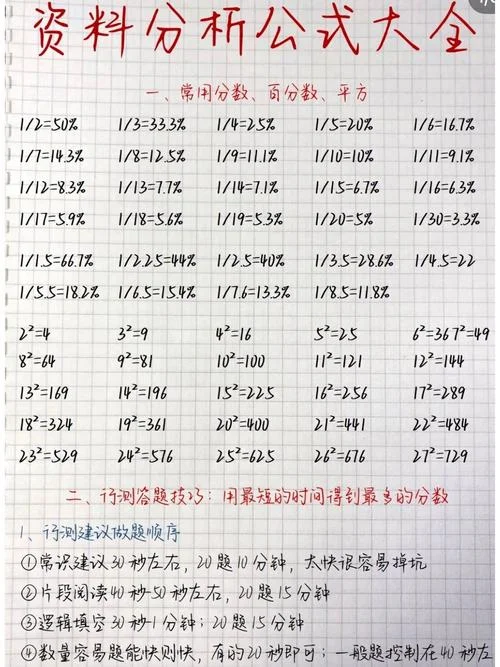 资料分析公式大全
一、常用分数、百分数、平方
1/2=50% 1/3=33.3% 1/4=25% 1/5=20% 1/6=16.7%
1/7=14.3% 1/8=12.5% 1/9=11.1% 1/10=10% 1/11=9.1%
1/12=8.3% 1/13=7.7% 1/14=7.1% 1/15=6.7% 1/16=6.3%
1/17=5.9% 1/18=5.6% 1/19=5.3% 1/20=5% 1/30=3.3%
1/1.5=66.7% 1/2.25=44% 1/2.5=40% 1/3.5=28.6% 1/4.5=22
1/5.5=18.2% 1/6.5=15.4% 1/7.6=13.3% 1/8.5=11.8%
2²=4 3²=9 4²=16 5²=25 6²=36 7²=49
8²=64 9²=81 10²=100 11²=121 12²=144
13²=169 14²=196 15²=225 16²=256 17²=289
18²=324 19²=361 20²=400 21²=441 22²=484
23²=529 24²=576 25²=625 26²=676 27²=729
二、行测答题技巧:用最短的时间得到最多的分数
1、行测建议做题顺序
①常识建议30秒左右,20题10分钟,太快很容易掉坑
②片段阅读40秒-50秒左右,20题15分钟
③逻辑填空30秒-1分钟;20题15分钟
④数量容易题能快则快,有的20秒即可;一般题控制在40秒左